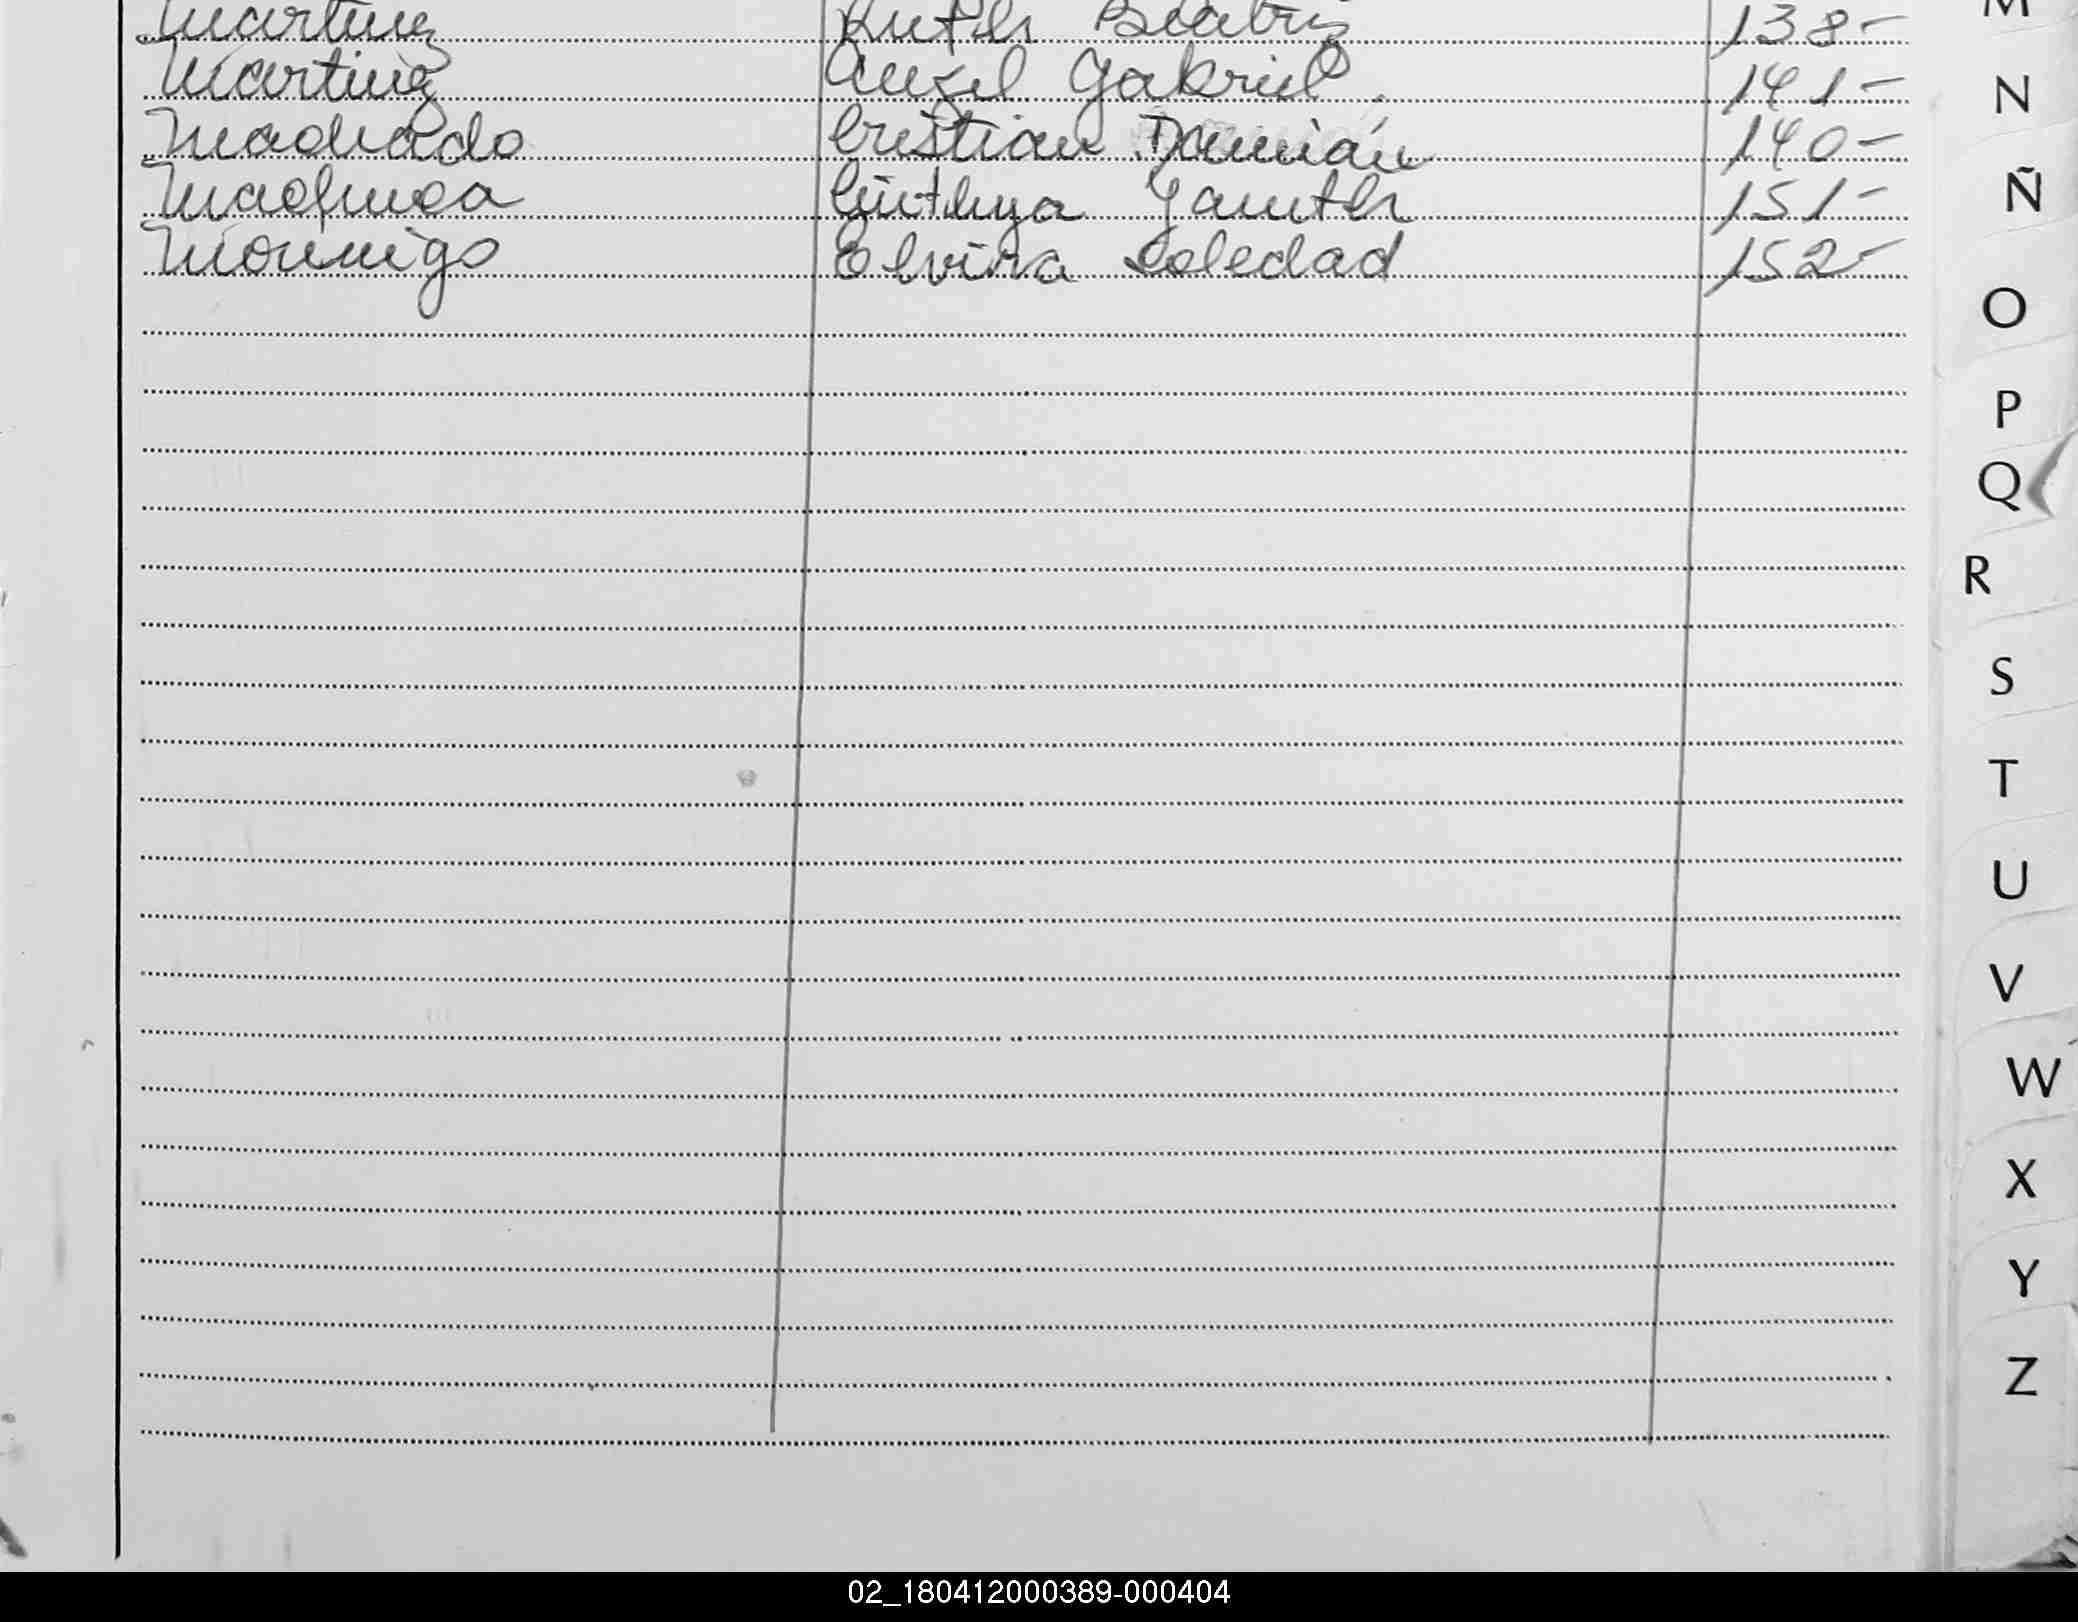 Martinez Ruth Beatriz 138-
Martinez Angel Gabriel. 141-
Machado Cristian Damián 140-
Cinthya Yaneth 151-
Morinigo Elvira Soledad 152-
M
N
Ñ
O
P
Q
R
S
T
U
V
W
X
Y
Z
02_180412000389-000404